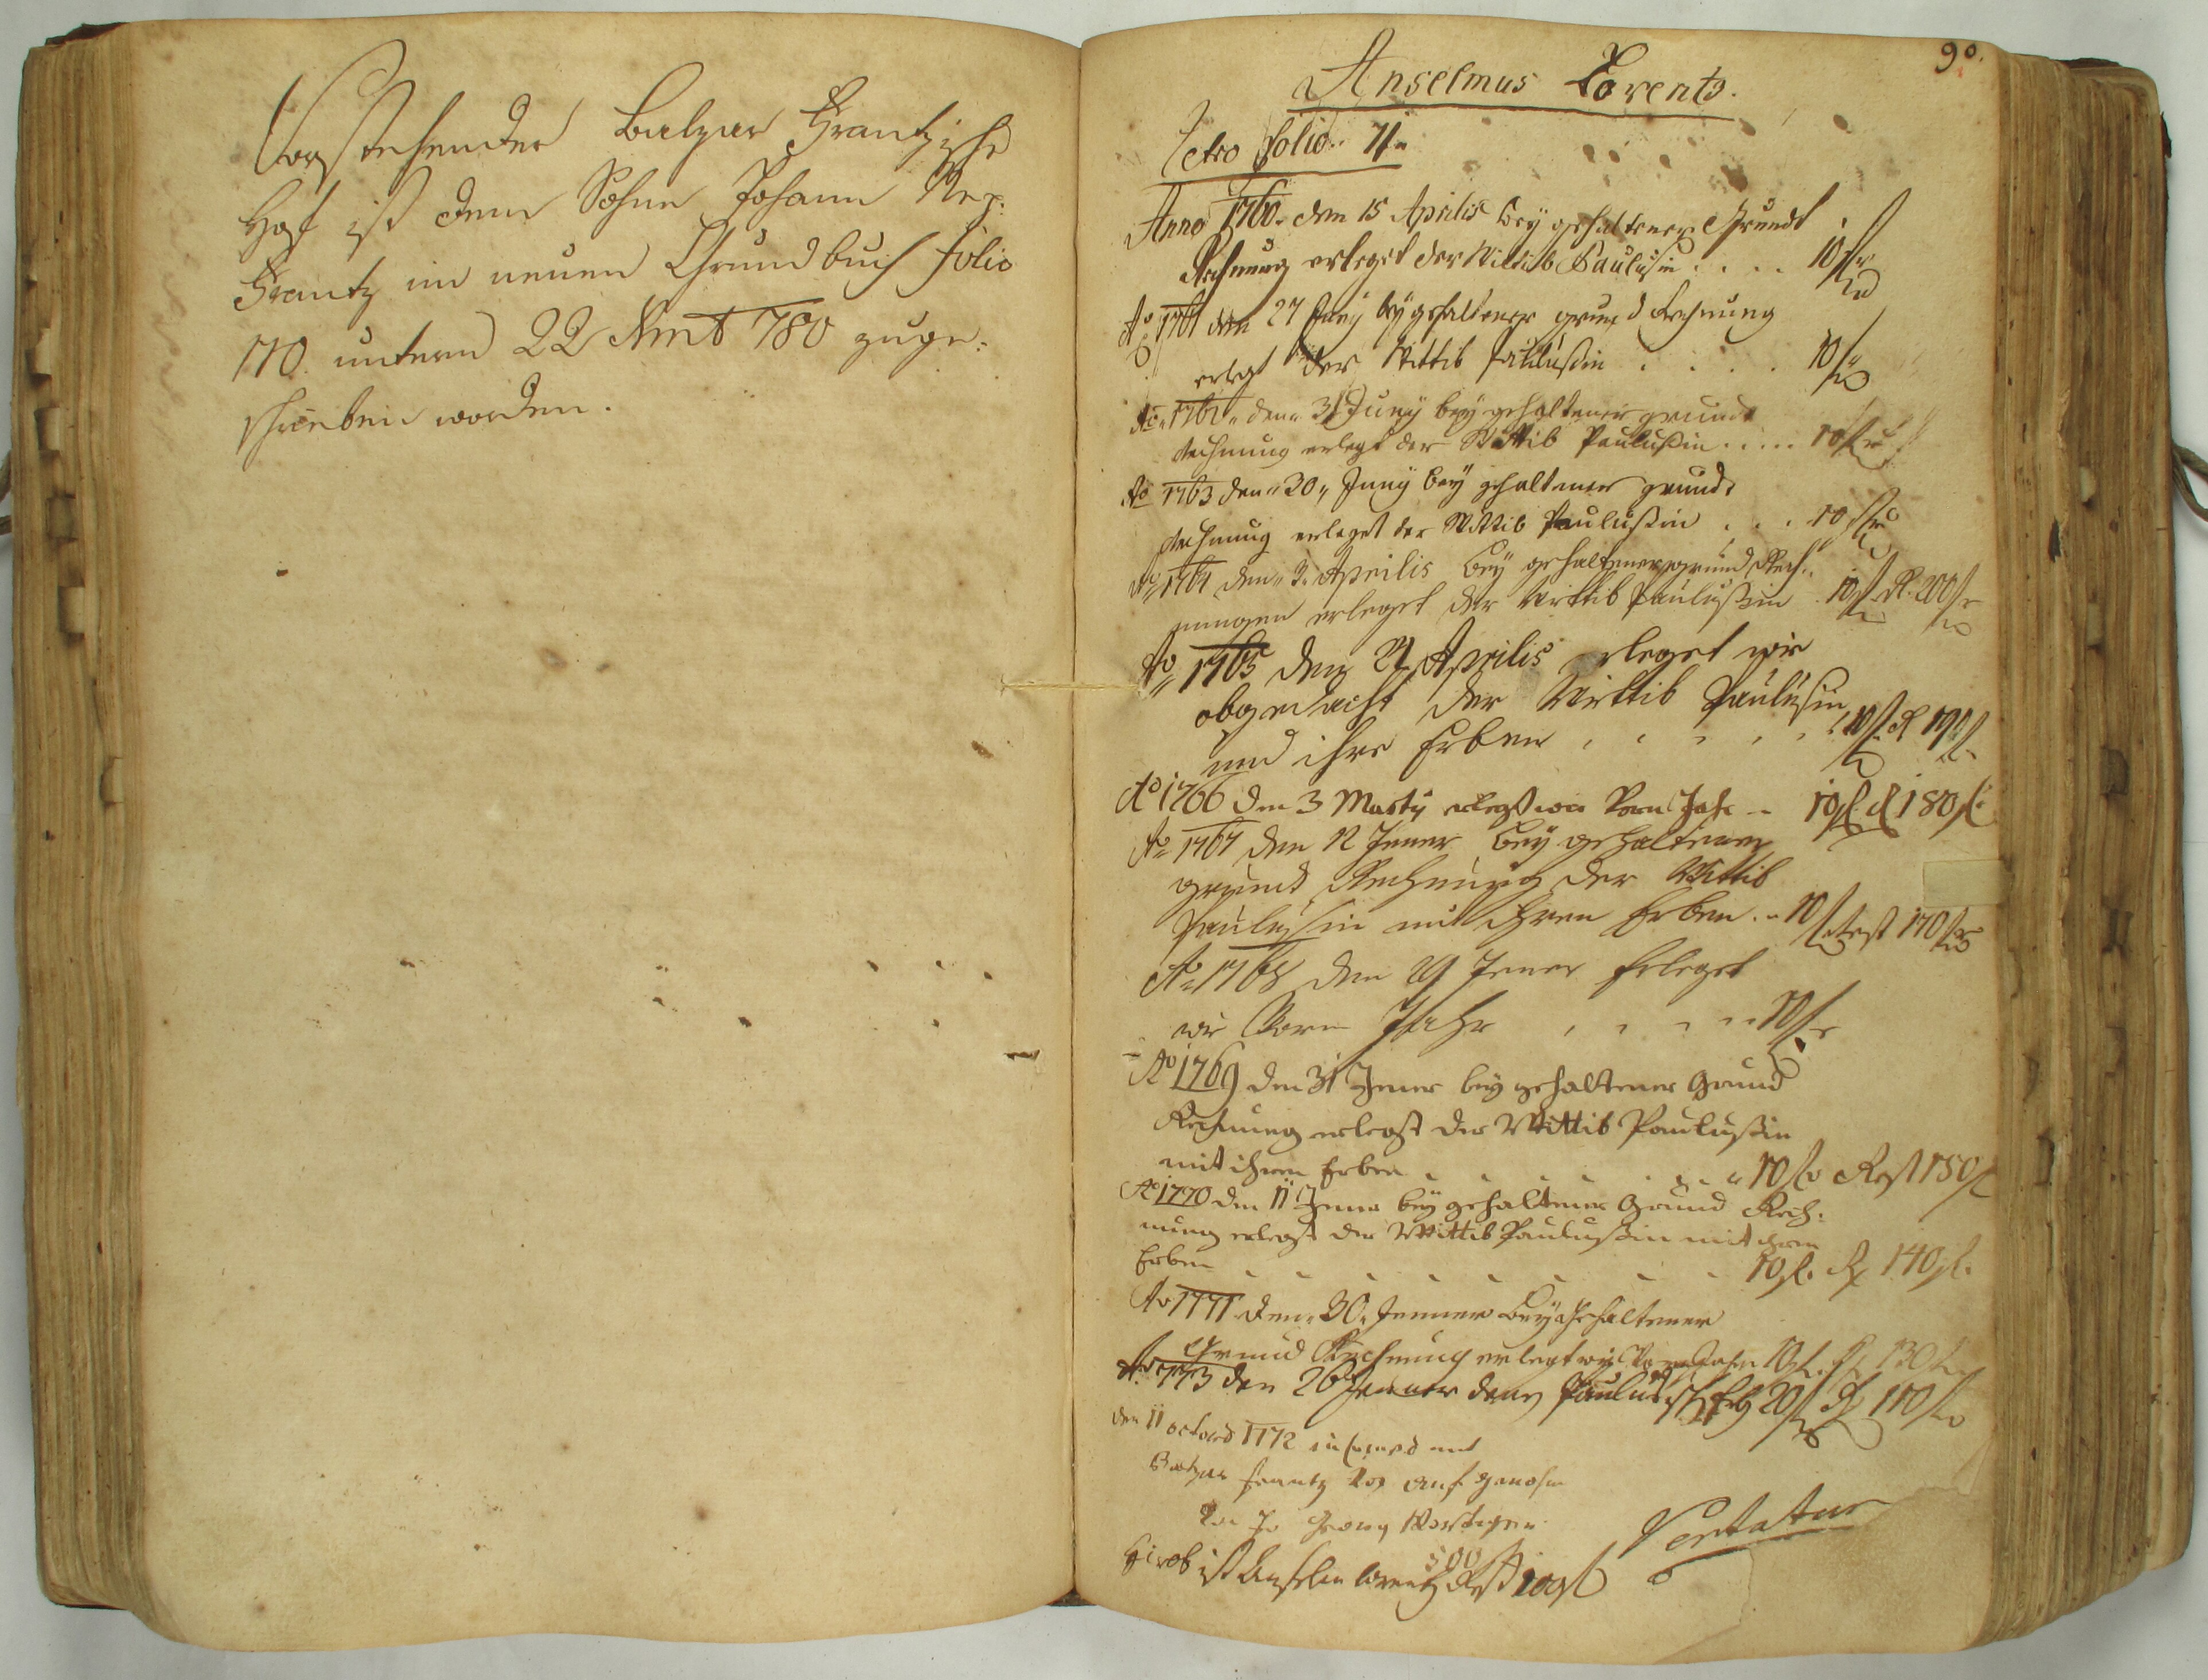 Vorstehender Balzar Frantzische
Hof ist dem Sohne Johann Nep:
Frantz im neuen Grundbuch folio
170 unterm 22 780 zuge-
schrieben worden.
90.
Anselmus Lorentz.
Retro folio 71.
Anno 1760. den 15 Aprilis bey gehaltener Grundt
Rechnung erleget der Wittib Paulusin .... 10 fl
Ao 1761 den 27 Juny bey gehaltener grund Rechnung
erlegt der Wittib Paulußin . . . . 10 fl
Ao 1762 den 31 Juny bey gehaltener grundt
rechnung erlegt der Wittib Paulußin ..... 10 fl
Ao 1763 den 20 Juny bey gehaltener grundt
rechnung erleget der Wittib Paulußin . . . 10 fl
Ao 1764 den 3. Aprilis bey gehaltener grund Rech-
nungen erleget der Wittib Paulußin 10 fl R. 200 fl
Ao 1765 den 21 Aprilis erleget wie
obgedacht der Wittib Paulusin
und ihre Erben . . . . . 10 fl R 190 fl
Ao 1766 den 3 Marty erlegt wie Vorn Jahr .. 10 fl R 180 fl
Ao 1767 den 12 Jener bey gehaltener
grund Rechnung der Wittib
Paulusin mit ihren Erben .. 10 fl Rest 170 fl
Ao 1768 den 29 Jener Erleget
wie Vorn Jahr . . . .. 10 fl
Ao 1769 den 31 Jener bey gehaltener Grund
Rechnung erlegt der Wittib Paulußin
mit ihren Erben . . . . . . 10 fl Rest 150 fl
Ao 1770 den 11 Jener bey gehaltener Grund Rech-
nung erlegt der Wittib Paulußin mit ihren
Erben . . . . . . . 10 fl. R 140 fl.
Ao 1771 den 30. Jenner bey gehaltener
Grund Rechnung erlegt wie Vorn Jahr 10 fl. R 130 fl
Ao 1773 den 26 Jenner denen 20 fl R 110 fl
den 11 octobris 1772
Balzar Frantz
Jo Georg
500
ist Anselm Lorentz Rest 100 fl
Vertatur